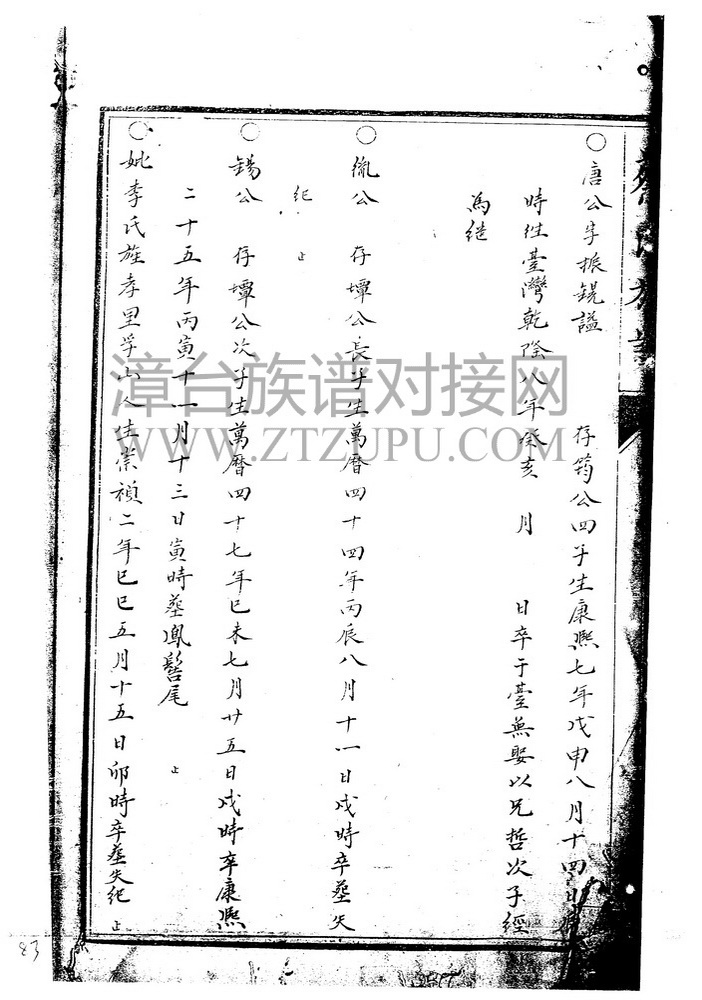 ○唐公字振鋭謚 存筠公四子生康熙七年戊申八月十四日
時往臺灣乾隆八年癸亥 月 日卒于臺無娶以兄哲次子經
為继
○胤公 存壜公長子生萬曆四十四年丙辰八月十一日戌時卒塟失
紀 止
○錫公 存壜公次子生萬曆四十七年巳未七月廿五日戌時卒康熙
二十五年丙寅十一月十三日寅時塟鳳髻尾 止
○妣李氏 孝里 山人生崇禎二年巳巳五月十五日卯時卒塟失纪 止
漳台族谱对接网
WWW.ZTZUPU.COM
83